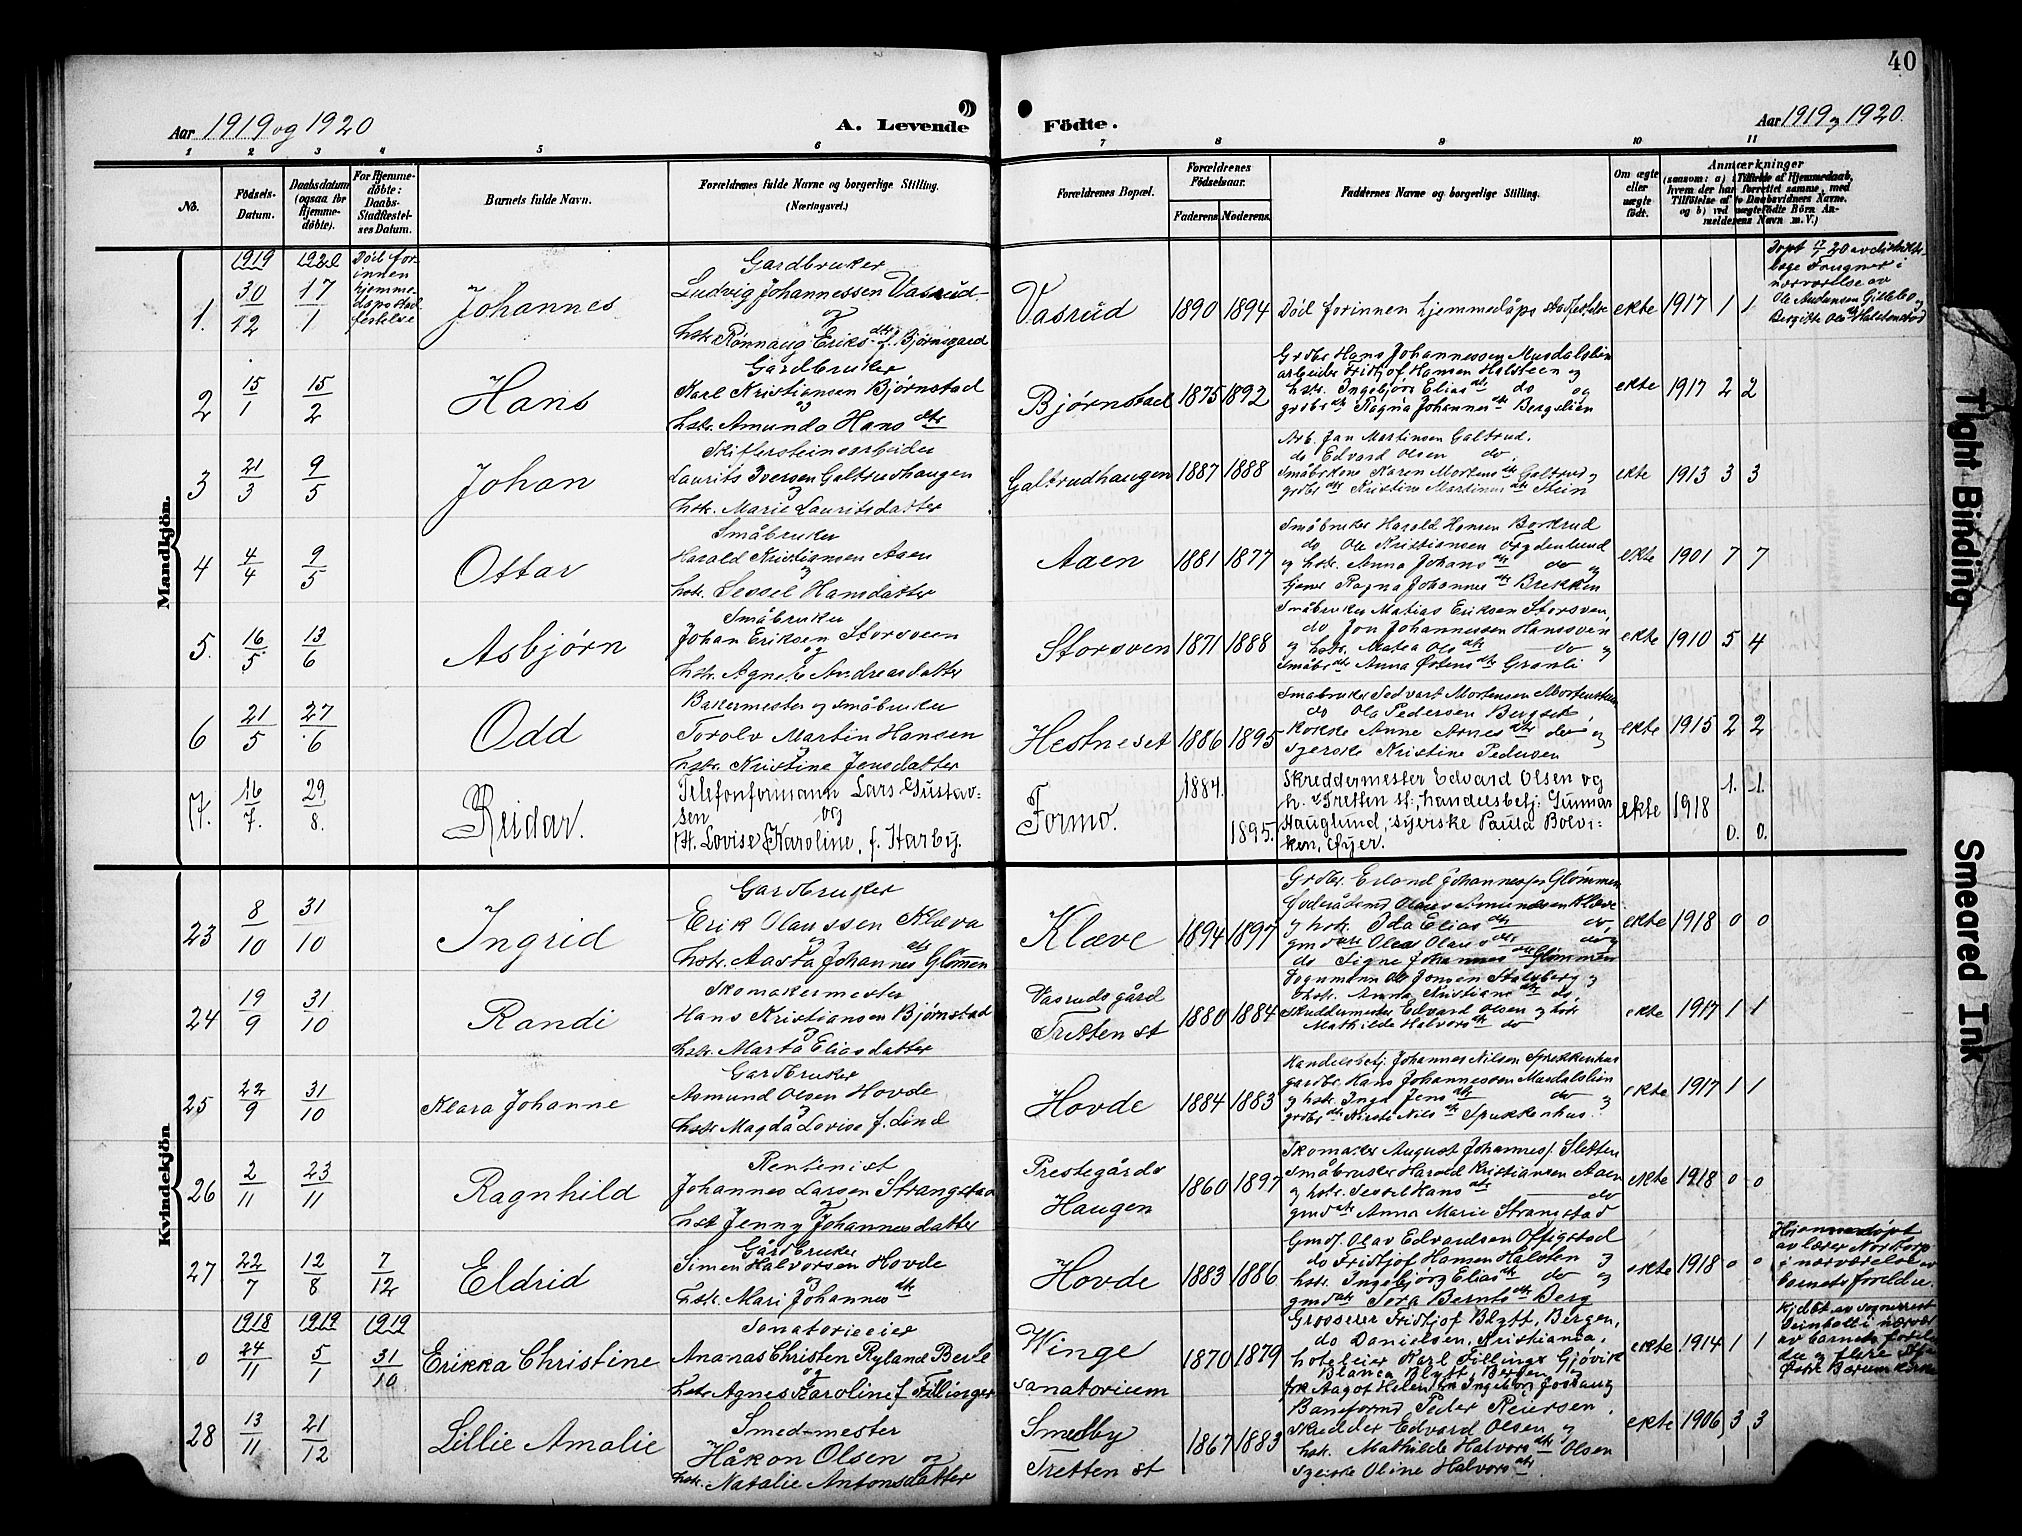 40
Aar 1919 og 1920
A. Levende
Födte.
Aar 1919 og 1920.
1 2 3 4 5 6 7 8 9 10 11
No.
Födsels-Datum.
Daabsdatum (ogsaa for Hjemme-döbte).
For Hjemme-döbte: Daabs-Stadfæstel-ses Datum.
Barnets fulde Navn.
Forældrenes fulde Navne og borgerlige Stilling. (Næringsvei.)
Forældrenes Bopæl.
Forældrenes Födselsaar.
Faderens. Moderens.
Faddernes Navne og borgerlige Stilling.
Om ægte eller uægte födt.
Anmærkninger
Mandkjön.
1919 1920
1. 30/12 17/1
Død for-
innen
hjemme-
dåpsstad-
festelse
Johannes
Gardbruker
Ludvig Johannessen Vasrud
og
hstr. Rønnaug Eriksdtr f. Bjørnsgaard
Vasrud 1890 1894
Død forinnen hjemmedåps stadfestelse
ekte 1917 1 1
2 15/1 15/2
Hans
Gardbruker
Karl Kristiansen Bjørnstad
og
hstr. Amunda Hans dtr
Bjørnstad 1875 1892
Grdbr Hans Johannessen Musdalslien
arbeider Fridtjof Hansen Halsteen og
hstr. Ingebjørg Elias dtr do og
grdbr dtr Ragna Johannes dtr Bergslien
ekte 1917 2 2
3 21/3 9/5
Johan
Skifersteinsarbeider
Laurits Iversen Galtrudhaugen
og
hstr. Marie Lauritsdatter
Galtrudhaugen 1887 1888
Arb. Jan Martinsen Galtrud.
do Edvard Olsen do
Småbrkone Karen Mortens dtr Galtrud og
grdbr dtr Kristine Martinus dtr Stein
ekte 1913 3 3
4 4/4 9/5
Ottar
Småbruker
Harald Kristiansen Aaen
og
hstr. Sessel Hansdatter
Aaen 1881 1877
Småbruker Harald Hansen Bordrud
do Ole Kristiansen Frydenlund
og hstr. Anna Johans dtr do og
tjener Ragna Johannes dtr Brekken
ekte 1901 7 7
5. 16/5 13/6
Asbjørn
Småbruker
Johan Eriksen Storsveen
og
hstr. Agnete Andreasdatter
Storsven 1871 1888
Småbruker Matias Eriksen Storsven,
do Jon Johannessen Hanssven
og hstr. Matea Ols dtr do og
Småbr dtr Anna Østens dtr Granli
ekte 1910 5 4
6 21/5 27/6
Odd
Bakermester og småbruker
Torolv Martin Hansen
og
hstr. Kristine Jensdatter
Hestneset 1886 1895
Småbruker Sedvart Mortensen Mortenstuen
do Ole Pedersen Bergset
Kokke Anne Arnes dtr der og
syerske Kristine Pedersen
ekte 1915 2 2
7. 16/7. 29/8.
Reidar.
Telefonformann Lars Gustav-
sen og
H. Lovise Karoline, f. Harby.
Formo. 1884. 1895.
Skreddermester Edvard Olsen og
h. v Tretten st:, handelsbetj: Gunnar
Hauglund, syerske Paula Bolvi-
ken, Øyer.
ekte 1918 1. 1. 0. 0.
Kvindekjön
23 8/10 31/10
Ingrid
Gardbruker
Erik Olaussen Klæva
og
hstr. Aasta Johannes dtr Glømmen
Klæve 1894 1897
Grdbr. Erland Johannessen Glømmen
Føderådsmd Olaus Amundsen Klæve
og hstr. Ida Elias dtr do,
gmd dtr Olea Olaus dtr do og
do Signe Johannes dtr Glømmen
ekte 1918 0 0
24 19/9 31/10
Randi
Skomakermester
Hans Kristiansen Bjørnstad
og
hstr. Marta Eliasdatter
Vasruds gård
Tretten st 1880 1884
Vognmann Jonsen Stalsberg og
hstr. Anna Kristians dtr do,
Skreddermester Edvard Olsen og hstr
Mathilde Halvors dtr do
ekte 1917 1 1
25 22/9 31/10
Klara Johanne
Gardbruker
Asmund Olsen Hovde
og
hstr. Magda Lovise f. Lind
Hovde 1884 1883
Handelsbetj. Johannes Nilsen Sprekkenhus
gardbr. Hans Johannessen Musdalslien
og hstr. Inga Jens dtr do og
grdbr dtr Kirsti Nils dtr Sprekkenhus.
ekte 1917 1 1
26 2/11 23/11
Ragnhild
Rentenist
Johannes Larsen Strangstad
og
hst Jenny Johannesdatter
Prestegårds
Haugen 1860 1897
Skomaker August Johanness. Sletten
Småbruker Harald Kristiansen Aaen
og hstr. Sessel Hans dtr do
gmd dtr Anna Marie Strangstad
ekte 1918 0 0
27 22/7 12/8 7/12
Eldrid
Gårdbruker
Simen Halvorsen Hovde
og
hstr. Mari Johannes dtr
Hovde 1883 1886
Gmd. Olav Edvardsen Offigstad
do Fridtjof Hansen Halsten og
hstr. Ingebjørg Elias dtr do og
gmd dtr Tora Bernts dtr Berg
ekte 1918 0 0
Hjemmedøpt
av lærer Nortorp
i nærværelse av
barnets foreldre.
1918 1919 1919
0 24/11 5/1 31/10
Erikka Christine
Sanatorieeier
Ananas Christen Ryland Berle
og
hstr Agnes Karoline f. Fillinger
Winge
sanatorium 1870 1879
Grosserer Fridtjof Blytt, Bergen,
do Danielsen, Kristiania,
hoteleier Karl Fillinge Gjøvik
Blanca Blytt, Bergen og
frk Aagot Helen frk Ingeborg Jossang
ekte 1914 1 1
28 13/11 21/12
Lillie Amalie
Smed-mester
Håkon Olsen og
hstr. Natalie Antonsdatter
Smedby
Tretten st 1867 1883
Baneformd Peder Reiersen,
Skredder Edvard Olsen og
hstr. Mathilde Halvors dtr Olsen
Syerske Oline Halvors dtr
ekte 1906 3 3
Tight Binding
Smeared Ink